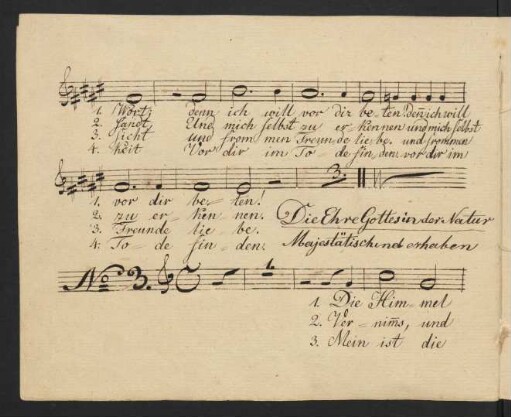 1. Wort; denn ich will vor dir be-ten deñ ich will
2. Und mich selbst zu er-kennen und mich selbst
3. sicht und from men Freunde lie be. und frommen
4. heit Vor dir im To-de fin den vor dir im
3.
1. vor dir be-ten!
2. zu er-ken nen.
3. Freunde lie be.
4. To-de fin den.
Die Ehre Gottes in der Natur
Majestätisch und erhaben
No 3.
1. Die Him-mel
2. Ver-nim̃s, und
3. Mein ist die